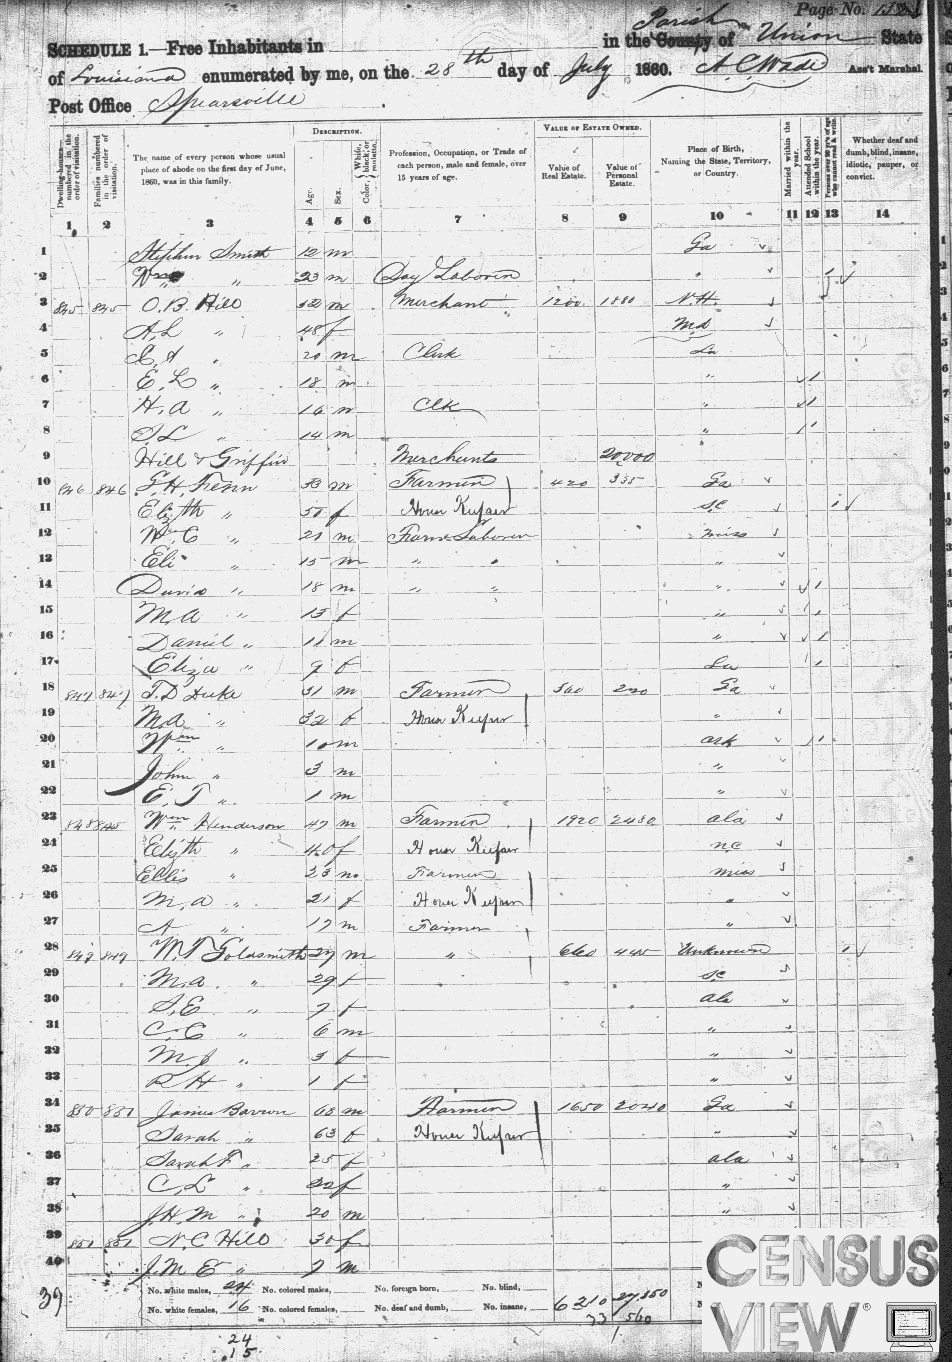 Page No. 
SCHEDULE 1.—Free Inhabitants in in the County of Parish Union State
of Louisiana enumerated by me, on the 28th day of July 1860. A C Wade Ass't Marshal.
Post Office Spearsville
Dwelling-houses—numbered in the order of visitation. Families numbered in the order of visitation. The name of every person whose usual place of abode on the first day of June, 1860, was in this family. DESCRIPTION. Age. Sex. Color, White, black, or mulatto. Profession, Occupation, or Trade of each person, male and female, over 15 years of age. VALUE OF ESTATE OWNED. Value of Real Estate. Value of Personal Estate. Place of Birth, Naming the State, Territory, or Country. Married within the year. Attended School within the year. Persons over 20 y'rs of age who cannot read & write. Whether deaf and dumb, blind, insane, idiotic, pauper, or convict.
1 2 3 4 5 6 7 8 9 10 11 12 13 14
1 Stephen Smith 12 m Ga
2 Wm " 23 m Day Laborer "
3 845 845 O.B. Hill 52 m Merchant 1200 1880 N.H.
4 A.L " 48 f Md
5 " 20 m Clerk La
6 E.L " 18 m "
7 H.A " 16 m Clk "
8 " 14 m "
9 Hill & Griffin Merchants 20000
10 846 846 m Farmer 420 335 Ga
11 Elizth " f House Keeper SC
12 Wm C " 21 m Farm Laborer Miss
13 Eli " 15 m " " "
14 David " 18 m " " "
15 M.A " 13 f "
16 Daniel " 11 m "
17 Eliza " 9 f La
18 847 847 T.D Duke 31 m Farmer 360 Ga
19 M.A " 32 f House Keeper "
20 Wm " 10 m Ark
21 John " 3 m "
22 E.T " 1 m "
23 848 Wm Henderson 47 m Farmer 1920 2430 Ala
24 Elizth " 40 f House Keeper N.C
25 Ellis " 23 m Farmer Miss
26 M.A " 21 f House Keeper "
27 A " 17 m Farmer "
28 849 849 W.T Goldsmith 27 m " 660 440 Unknown
29 M.A. " 29 f SC
30 S.E. " 7 f Ala
31 C.C " 6 m "
32 M.J " 3 f "
33 R H " 1 f "
34 850 James Barron 68 m Farmer 1650 2040 Ga
35 Sarah " 63 f House Keeper "
36 Sarah F " 25 f Ala
37 C.L " 22 f "
38 J.H.M " 20 m "
39 851 851 N.C Hill 30 f
40 J.M.E " 7 m
39 No. white males, 24 No. colored males, No. foreign born, No. blind,
No. white females, 16 No. colored females, No. deaf and dumb, No. insane, 6210 27,350
24
15
CENSUS
VIEW®